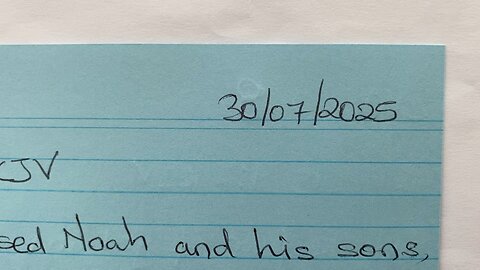 30/07/2025
KJV
sed Noah and his sons,